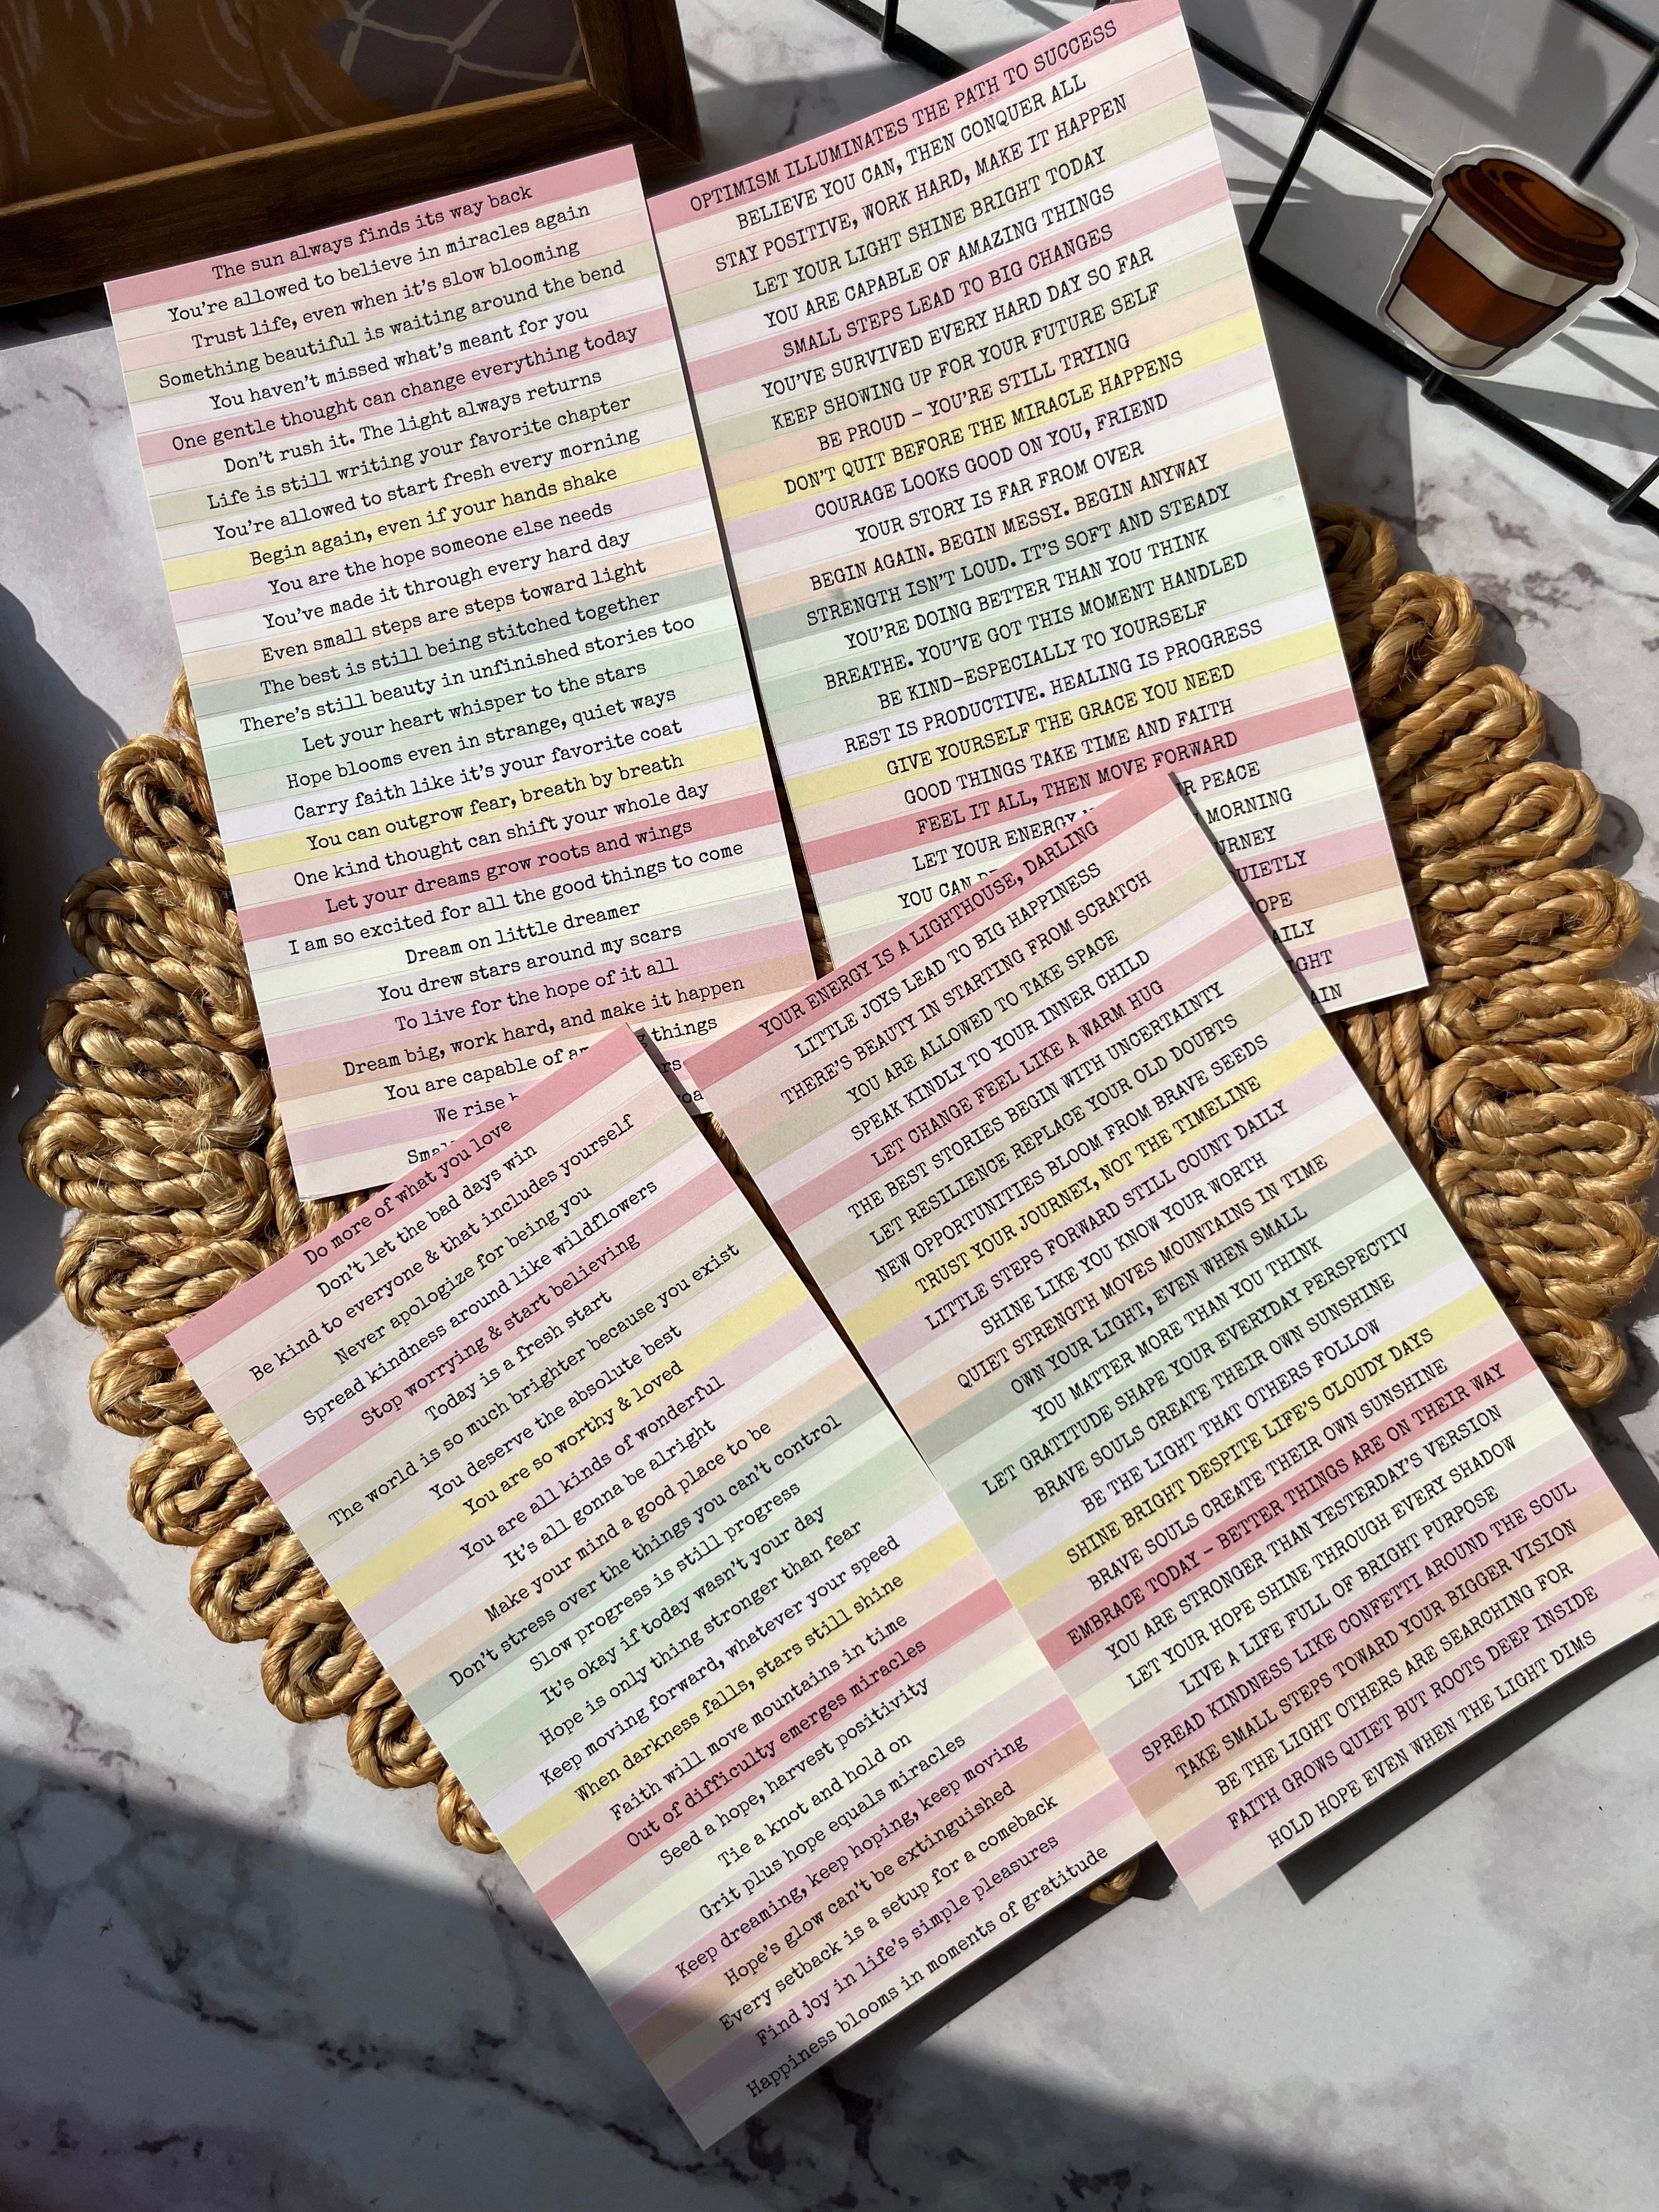 The sun always finds its way back
You're allowed to believe in miracles again
Trust life, even when it's slow blooming
Something beautiful is waiting around the bend
You haven't missed what's meant for you
One gentle thought can change everything today
Don't rush it. The light always returns
Life is still writing your favorite chapter
You're allowed to start fresh every morning
Begin again, even if your hands shake
You are the hope someone else needs
You've made it through every hard day
Even small steps are steps toward light
The best is still being stitched together
There's still beauty in unfinished stories too
Let your heart whisper to the stars
Hope blooms even in strange, quiet ways
Carry faith like it's your favorite coat
You can outgrow fear, breath by breath
One kind thought can shift your whole day
Let your dreams grow roots and wings
I am so excited for all the good things to come
Dream on little dreamer
You drew stars around my scars
To live for the hope of it all
Dream big, work hard, and make it happen
You are capable of things
We rise
OPTIMISM ILLUMINATES THE PATH TO SUCCESS
BELIEVE YOU CAN, THEN CONQUER ALL
STAY POSITIVE, WORK HARD, MAKE IT HAPPEN
LET YOUR LIGHT SHINE BRIGHT TODAY
YOU ARE CAPABLE OF AMAZING THINGS
SMALL STEPS LEAD TO BIG CHANGES
YOU'VE SURVIVED EVERY HARD DAY SO FAR
KEEP SHOWING UP FOR YOUR FUTURE SELF
BE PROUD – YOU'RE STILL TRYING
DON'T QUIT BEFORE THE MIRACLE HAPPENS
COURAGE LOOKS GOOD ON YOU, FRIEND
YOUR STORY IS FAR FROM OVER
BEGIN AGAIN. BEGIN MESSY. BEGIN ANYWAY
STRENGTH ISN'T LOUD. IT'S SOFT AND STEADY
YOU'RE DOING BETTER THAN YOU THINK
BREATHE. YOU'VE GOT THIS MOMENT HANDLED
BE KIND–ESPECIALLY TO YOURSELF
REST IS PRODUCTIVE. HEALING IS PROGRESS
GIVE YOURSELF THE GRACE YOU NEED
GOOD THINGS TAKE TIME AND FAITH
FEEL IT ALL, THEN MOVE FORWARD
LET YOUR ENERGY PEACE
YOU CAN MORNING
Do more of what you love
Don't let the bad days win
Be kind to everyone & that includes yourself
Never apologize for being you
Spread kindness around like wildflowers
Stop worrying & start believing
Today is a fresh start
The world is so much brighter because you exist
You deserve the absolute best
You are so worthy & loved
You are all kinds of wonderful
It's all gonna be alright
Make your mind a good place to be
Don't stress over the things you can't control
Slow progress is still progress
It's okay if today wasn't your day
Hope is only thing stronger than fear
Keep moving forward, whatever your speed
When darkness falls, stars still shine
Faith will move mountains in time
Out of difficulty emerges miracles
Seed a hope, harvest positivity
Tie a knot and hold on
Grit plus hope equals miracles
Keep dreaming, keep hoping, keep moving
Hope's glow can't be extinguished
Every setback is a setup for a comeback
Find joy in life's simple pleasures
Happiness blooms in moments of gratitude
YOUR ENERGY IS A LIGHTHOUSE, DARLING
LITTLE JOYS LEAD TO BIG HAPPINESS
THERE'S BEAUTY IN STARTING FROM SCRATCH
YOU ARE ALLOWED TO TAKE SPACE
SPEAK KINDLY TO YOUR INNER CHILD
LET CHANGE FEEL LIKE A WARM HUG
THE BEST STORIES BEGIN WITH UNCERTAINTY
LET RESILIENCE REPLACE YOUR OLD DOUBTS
NEW OPPORTUNITIES BLOOM FROM BRAVE SEEDS
TRUST YOUR JOURNEY, NOT THE TIMELINE
LITTLE STEPS FORWARD STILL COUNT DAILY
SHINE LIKE YOU KNOW YOUR WORTH
QUIET STRENGTH MOVES MOUNTAINS IN TIME
OWN YOUR LIGHT, EVEN WHEN SMALL
YOU MATTER MORE THAN YOU THINK
LET GRATITUDE SHAPE YOUR EVERYDAY PERSPECTIV
BRAVE SOULS CREATE THEIR OWN SUNSHINE
BE THE LIGHT THAT OTHERS FOLLOW
SHINE BRIGHT DESPITE LIFE'S CLOUDY DAYS
BRAVE SOULS CREATE THEIR OWN SUNSHINE
EMBRACE TODAY – BETTER THINGS ARE ON THEIR WAY
YOU ARE STRONGER THAN YESTERDAY'S VERSION
LET YOUR HOPE SHINE THROUGH EVERY SHADOW
LIVE A LIFE FULL OF BRIGHT PURPOSE
SPREAD KINDNESS LIKE CONFETTI AROUND THE SOUL
TAKE SMALL STEPS TOWARD YOUR BIGGER VISION
BE THE LIGHT OTHERS ARE SEARCHING FOR
FAITH GROWS QUIET BUT ROOTS DEEP INSIDE
HOLD HOPE EVEN WHEN THE LIGHT DIMS